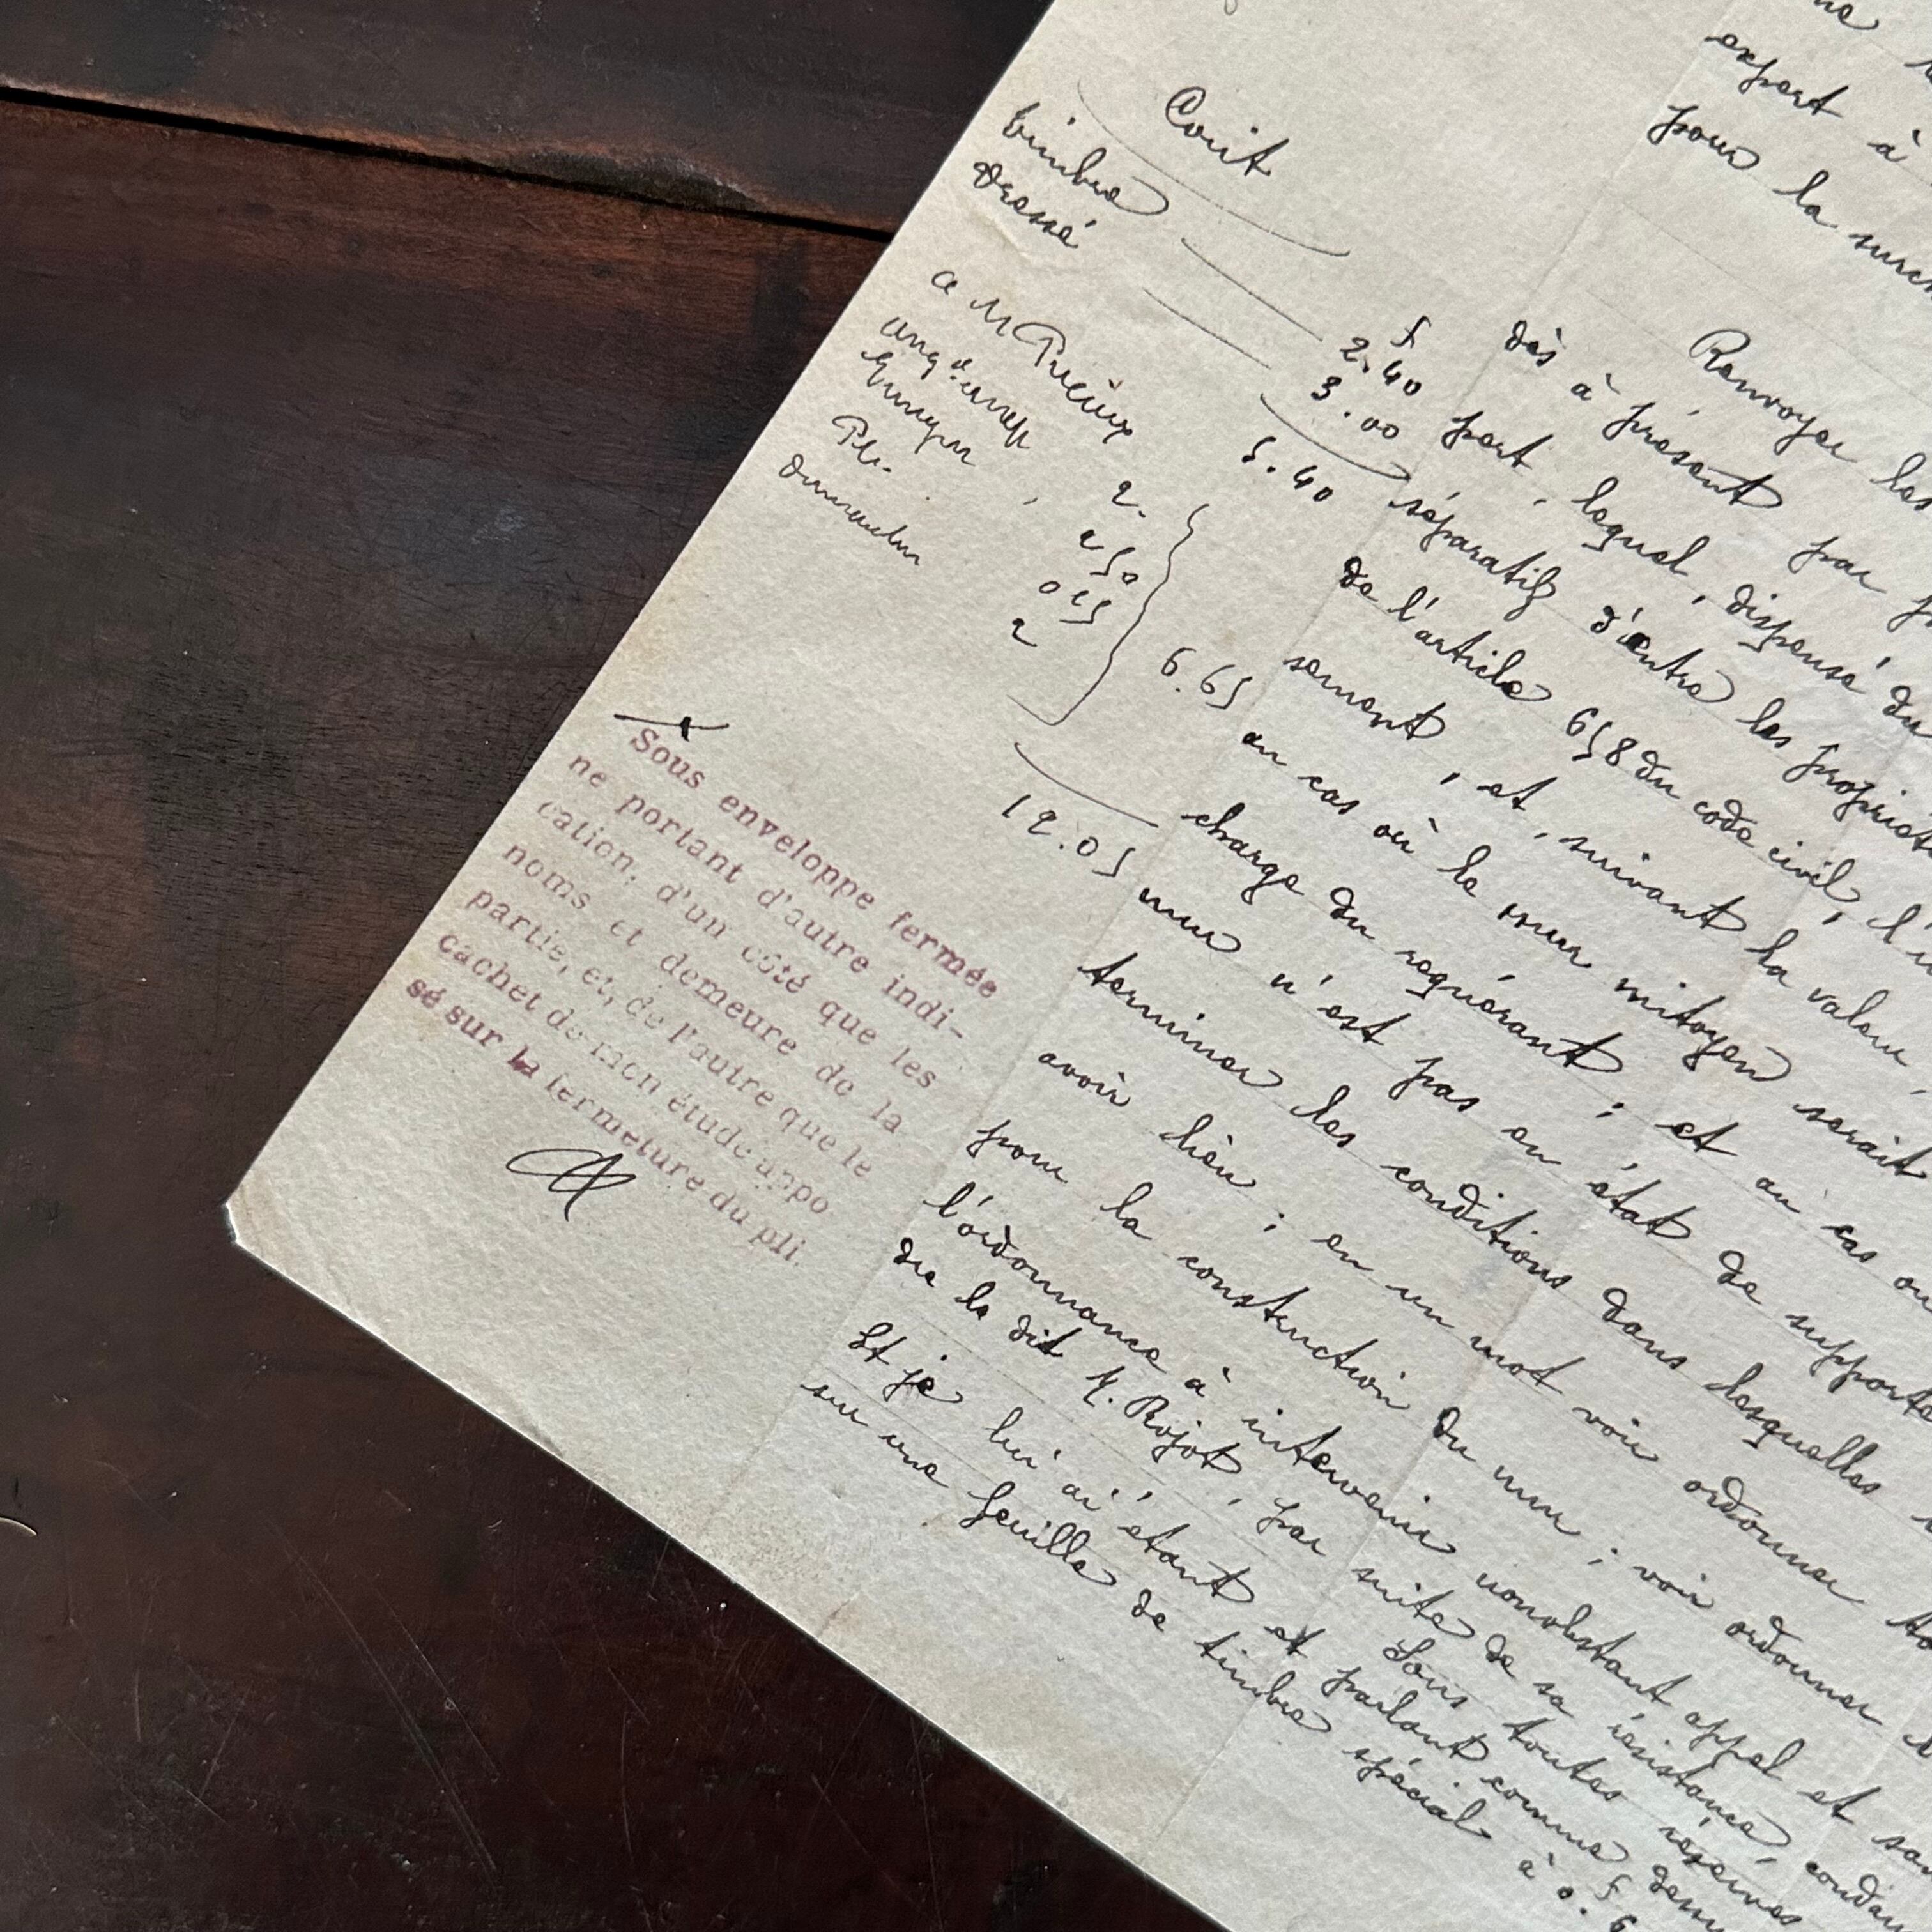 Coût
timbre 2.40
Dressé 3.00
5.40
a M Précieux 2.
2 50
Pli 0 15
2
6.65
12.05
Sous enveloppe fermée
ne portant d'autre indi-
cation, d'un côté que les
noms et demeure de la
partie, et, de l'autre que le
cachet de mon étude appo
sé sur la fermeture du pli.
expert à
pour la
Renvoyer les
dès à présent par
part, lequel, dispensé du
séparatif d'entre les
de l'article 658 du code civil, l'
sement, et, suivant la valeur,
au cas où le mur mitoyen serait
charge du requérant ; et au cas où
mur n'est pas en état de
terminer les conditions dans lesquelles
avoir lieu ; en un mot voir ordonner
pour la construction du mur ; voir ordonner
l'ordonnance à intervenir nonobstant appel et
dre le dit M. Rojot, par suite de sa résistance,
Sous toutes réserves
Et je lui ai étant et parlant comme
sur une feuille de timbre spécial à 0.6